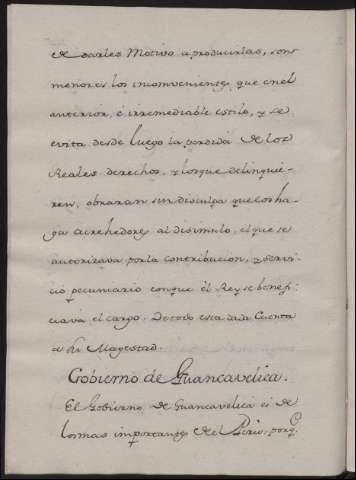 de darles Motivo a producirlas, son
menores los inconvenientes que en el
anterior, é irremediable estilo, y se
evita desde luego la perdida de los
Reales derechos, y los que delinquie-
ren, obraran sin disculpa que los ha-
ga acrehedores al disimulo, el que se
autorizava por la contribucion, y servi-
cio pecuniario con que el Rey se benefi-
ciava el cargo. De todo esta dada Cuenta
a su Magestad.
Gobierno de Guancavelica.
El Gobierno de Guancavelica es de
los mas importantes del Perù, porq.e